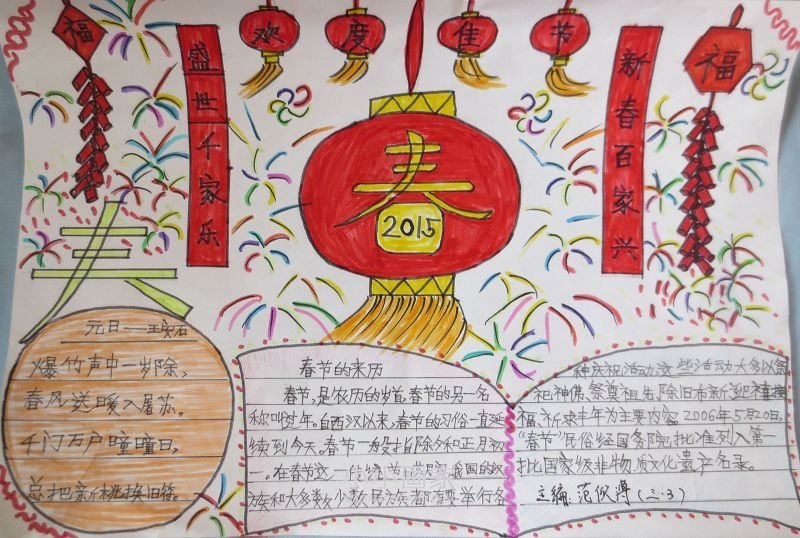 欢度佳节
福
盛世千家乐
新春百家兴
福
春
2015
春
元日——王安石
爆竹声中一岁除，
春风送暖入屠苏。
千门万户曈曈日，
总把新桃换旧符。
春节的来历
春节，是农历的岁首，春节的另一名
称叫过年。自西汉以来，春节的习俗一直延
续到今天。春节一般指除夕和正月初
一。在春节这一传统节日期间，我国的汉
族和大多数少数民族都有要举行各
种庆祝活动，这些活动大多以祭
祀神佛、祭奠祖先、除旧布新、迎禧接
福、祈求丰年为主要内容。2006年5月20日，
“春节”民俗经国务院批准列入第一
批国家级非物质文化遗产名录。
主编：范（三.3）